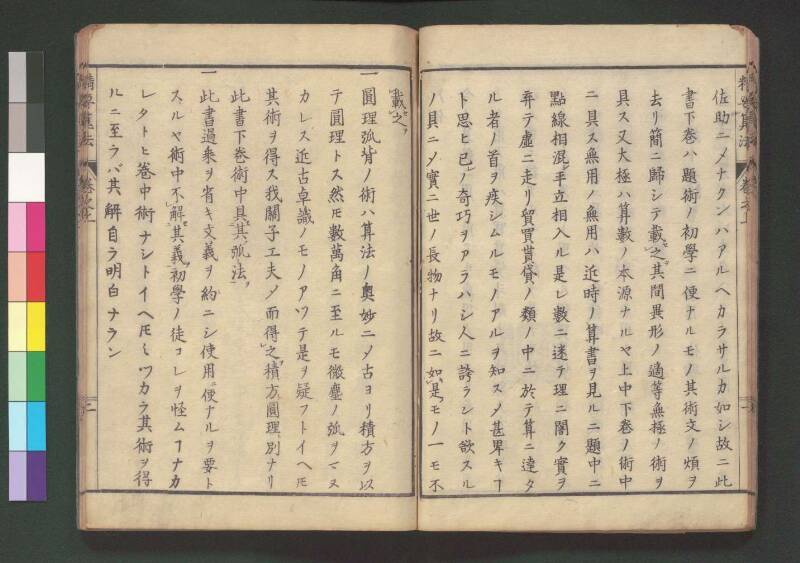 佐助ニメナクンハアルヘカラサルカ如シ故ニ此
書下巻ハ題術ノ初學ニ便ナルモノ其術文ノ煩ヲ
去リ簡ニ歸シテ載之其間異形ノ適等無極ノ術ヲ
具ス又大極ハ算數ノ本源ナルヤ上中下巻ノ術中
ニ具ス無用ノ無用ハ近時ノ算書ヲ見ルニ題中ニ
點線相混平立相入ル是レ數ニ迷テ理ニ闇ク實ヲ
弃テ虚ニ走リ貿買貰貸ノ類ノ中ニ於テ算ニ達タ
ル者ノ首ヲ疾シムルモノアルヲ知スメ甚卑キヿ
ト思ヒ己ノ奇巧ヲアラハシ人ニ誇ラント欲スル
ノ具ニメ實ニ世ノ長物ナリ故ニ如是モノ一モ不
載之
一圓理弧背ノ術ハ算法ノ奥妙ニメ古ヨリ積方ヲ以
テ圓理トス然𪜈數萬角ニ至ルモ微塵ノ弧ヲマヌ
カレス近古卓識ノモノアツテ是ヲ疑フトイヘ𪜈
其術ヲ得ス我關子工夫メ而得之積方圓理別ナリ
此書下巻術中具其弧法
一此書過乘ヲ省キ文義ヲ約ニシ使用便ナルヲ要ト
スルヤ術中不解其義初學ノ徒コレヲ怪ムヿナカ
レタトヒ巻中術ナシトイヘ𪜈ミツカラ其術ヲ得
ルニ至ラバ其解自ラ明白ナラン
精要算法
巻之上
一
精要算法
巻之上
二